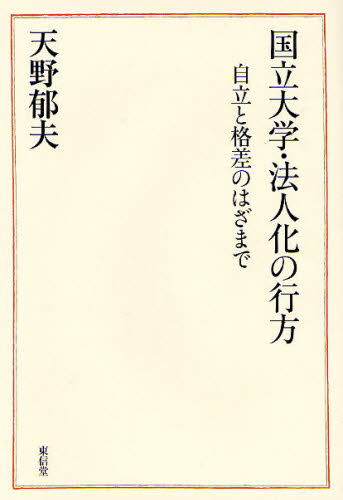 国立大学・法人化の行方
自立と格差のはざまで
天野郁夫
東信堂